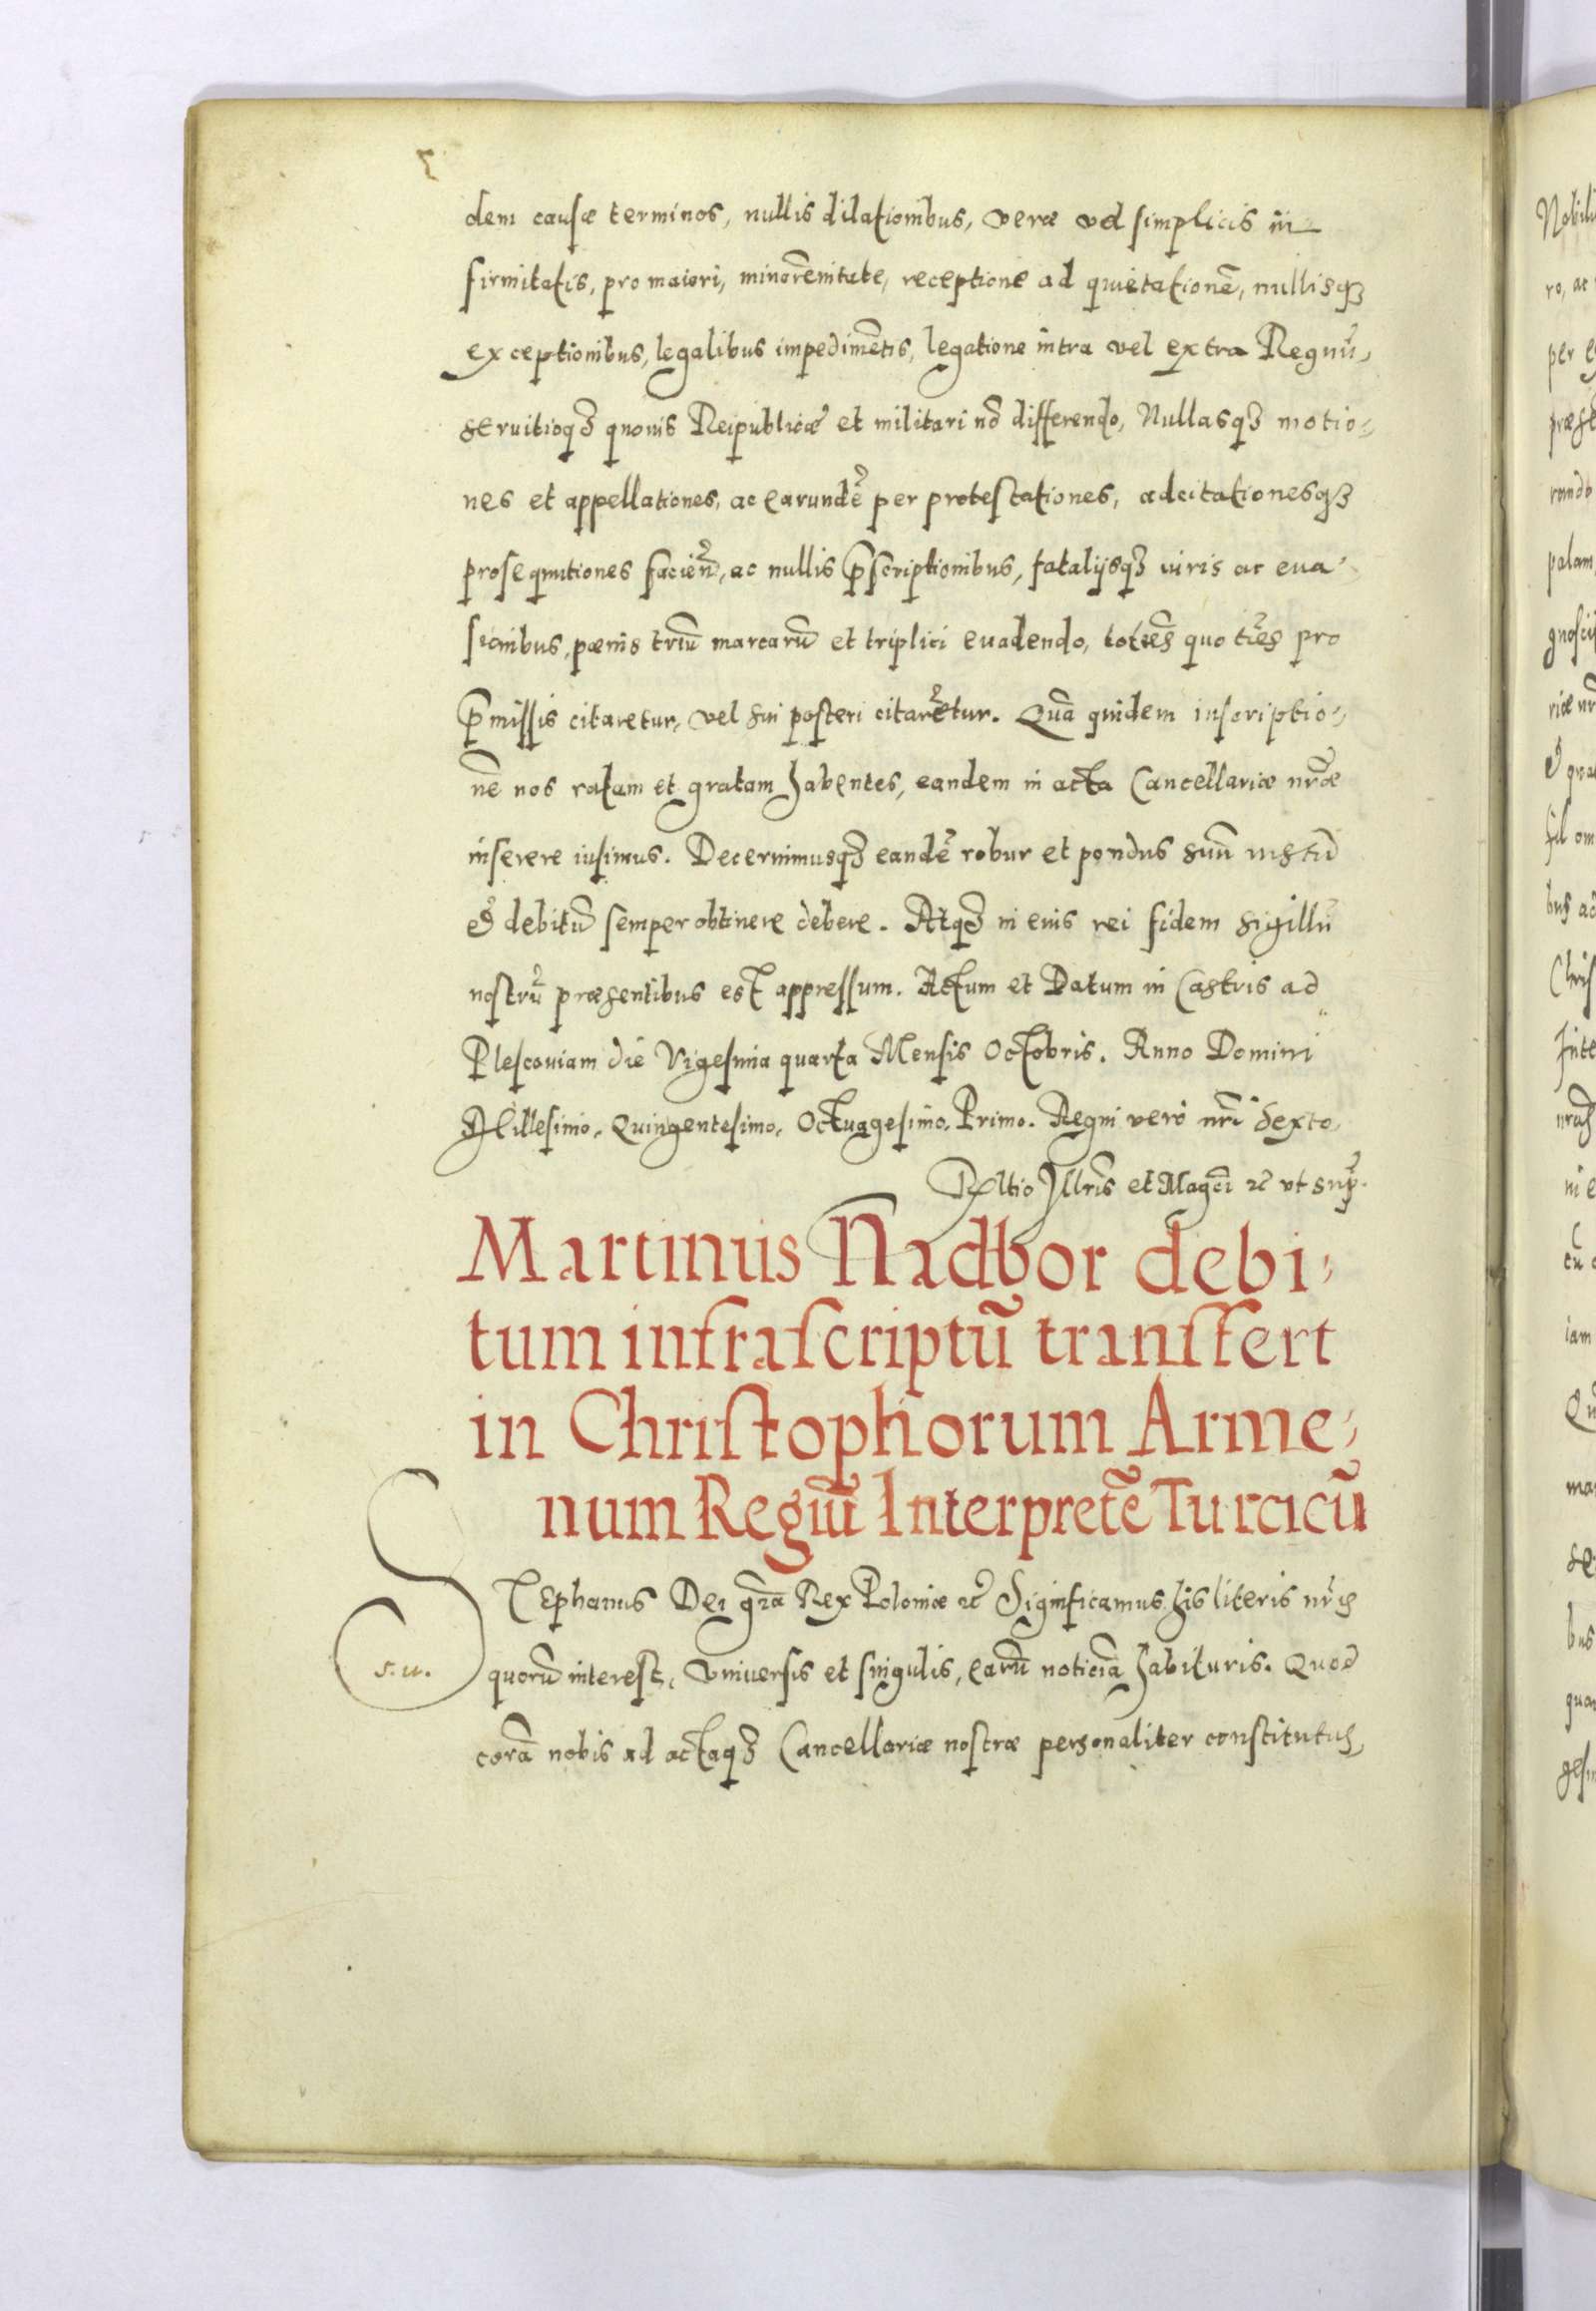 dem causæ terminos, nullis dilationibus, veræ vel simplicis in
firmitatis, pro maiori, minorēnitate, receptione ad quietationē, nullisqꝫ
exceptionibus, legalibus impedimētis, legatione intra vel extra Regnū,
servitioqꝫ quouis Reipublicæ et militari nō differendo, Nullasqꝫ motio⸗
nes et appellationes, ac earundē per protestationes, adcitationesqꝫ
prosequutiones facien̄, ac nullis p̄scriptionibus, fatalijsqꝫ iuris ac eua⸗
sionibus, pœnis triū marcarū et triplici euadendo, toties quoties pro
p̄missis citaretur, vel sui posteri citarētur. Quā quidem inscriptio⸗
nē nos ratam et gratam habentes, eandem in acta Cancellariæ nr̄æ
inserere iusimus. Decernimusqꝫ eandē robur et pondus suū iustū
et debitū semper obtinere debere. Atqꝫ in eius rei fidem sigillū
nostrū præsentibus est appressum. Actum et Datum in Castris ad
Plescouiam die Vigesima quarta Mensis Octobris. Anno Domini
Millesimo, Quingentesimo, Octuagesimo, Primo. Regni vero nr̄i Sexto.
Rl̄tio Illris et Maḡci ꝛc̄ vt sup̄.
Martinus Nadbor debi⸗
tum infrascriptū transfert
in Christophorum Arme⸗
num Regiū Interpretē Turcicū
STEphanus Dei gr̄a Rex Poloniæ ꝛc̄ Significamus his literis nr̄is
s. u.
quorū interest, Vniuersis et singulis, earū noticiā habituris. Quod
corā nobis ad actaqꝫ Cancellariæ nostræ personaliter constitutus,